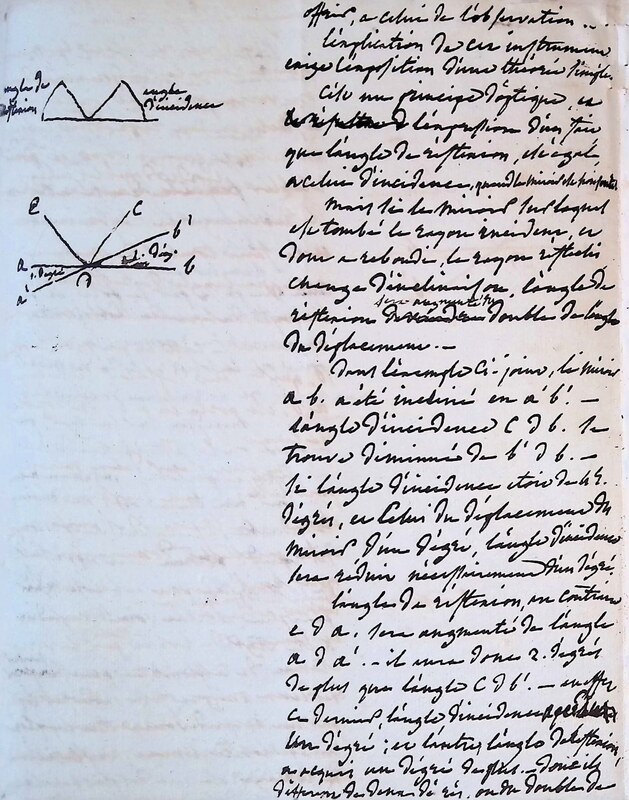 offrir, a celui de l'observation ..
l'explication de cet instrument
exige l'exposition d'une théorie simple.
C'est un principe d'optique, et
l'expression d'un fait
que l'angle de réflexion, est égal,
a celui d'incidence, quand le miroir est
angle de
réflexion
angle
d'incidence
mais si le miroir sur lequel
est tombé le rayon incident, et
dont a rebondi, le rayon réfléchi
change d'inclinaison, l'angle de
réflexion sera augmenté du double de l'angle
du déplacement. —
E
C
b'
a
1. degré
b
a'
D
Dans l'exemple ci-joint, le miroir
a b. a été incliné en a' b'. —
l'angle d'incidence C d b. se
trouve diminué de b' d b. —
si l'angle d'incidence etoit de 45.
degrés, et celui du déplacement du
miroir d'un degré, l'angle d'incidence
sera réduit nécessairement d'un degré,
l'angle de réflexion, au contraire
e d a. sera augmenté de l'angle
a d a'. — il aura donc 2. degrés
de plus que l'angle C d b'. — en effet
ce dernier, l'angle d'incidence
un degré ; et l'autre, l'angle de réflexion,
a acquis un degré de plus. — donc ils
diffèrent de deux degrés, ou du double de